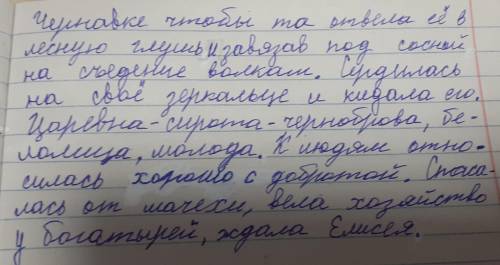 Чернавке чтобы та отвела её в
лесную глушь и завязав под сосной
на съедение волкам. Сердилась
на своё зеркальце и кидала его.
Царевна-сирота-черноброва, бе-
лолица, молода. К людям отно-
силась хорошо с добротой. Спаса-
лась от мачехи, вела хозяйство
у богатырей, ждала Елисея.